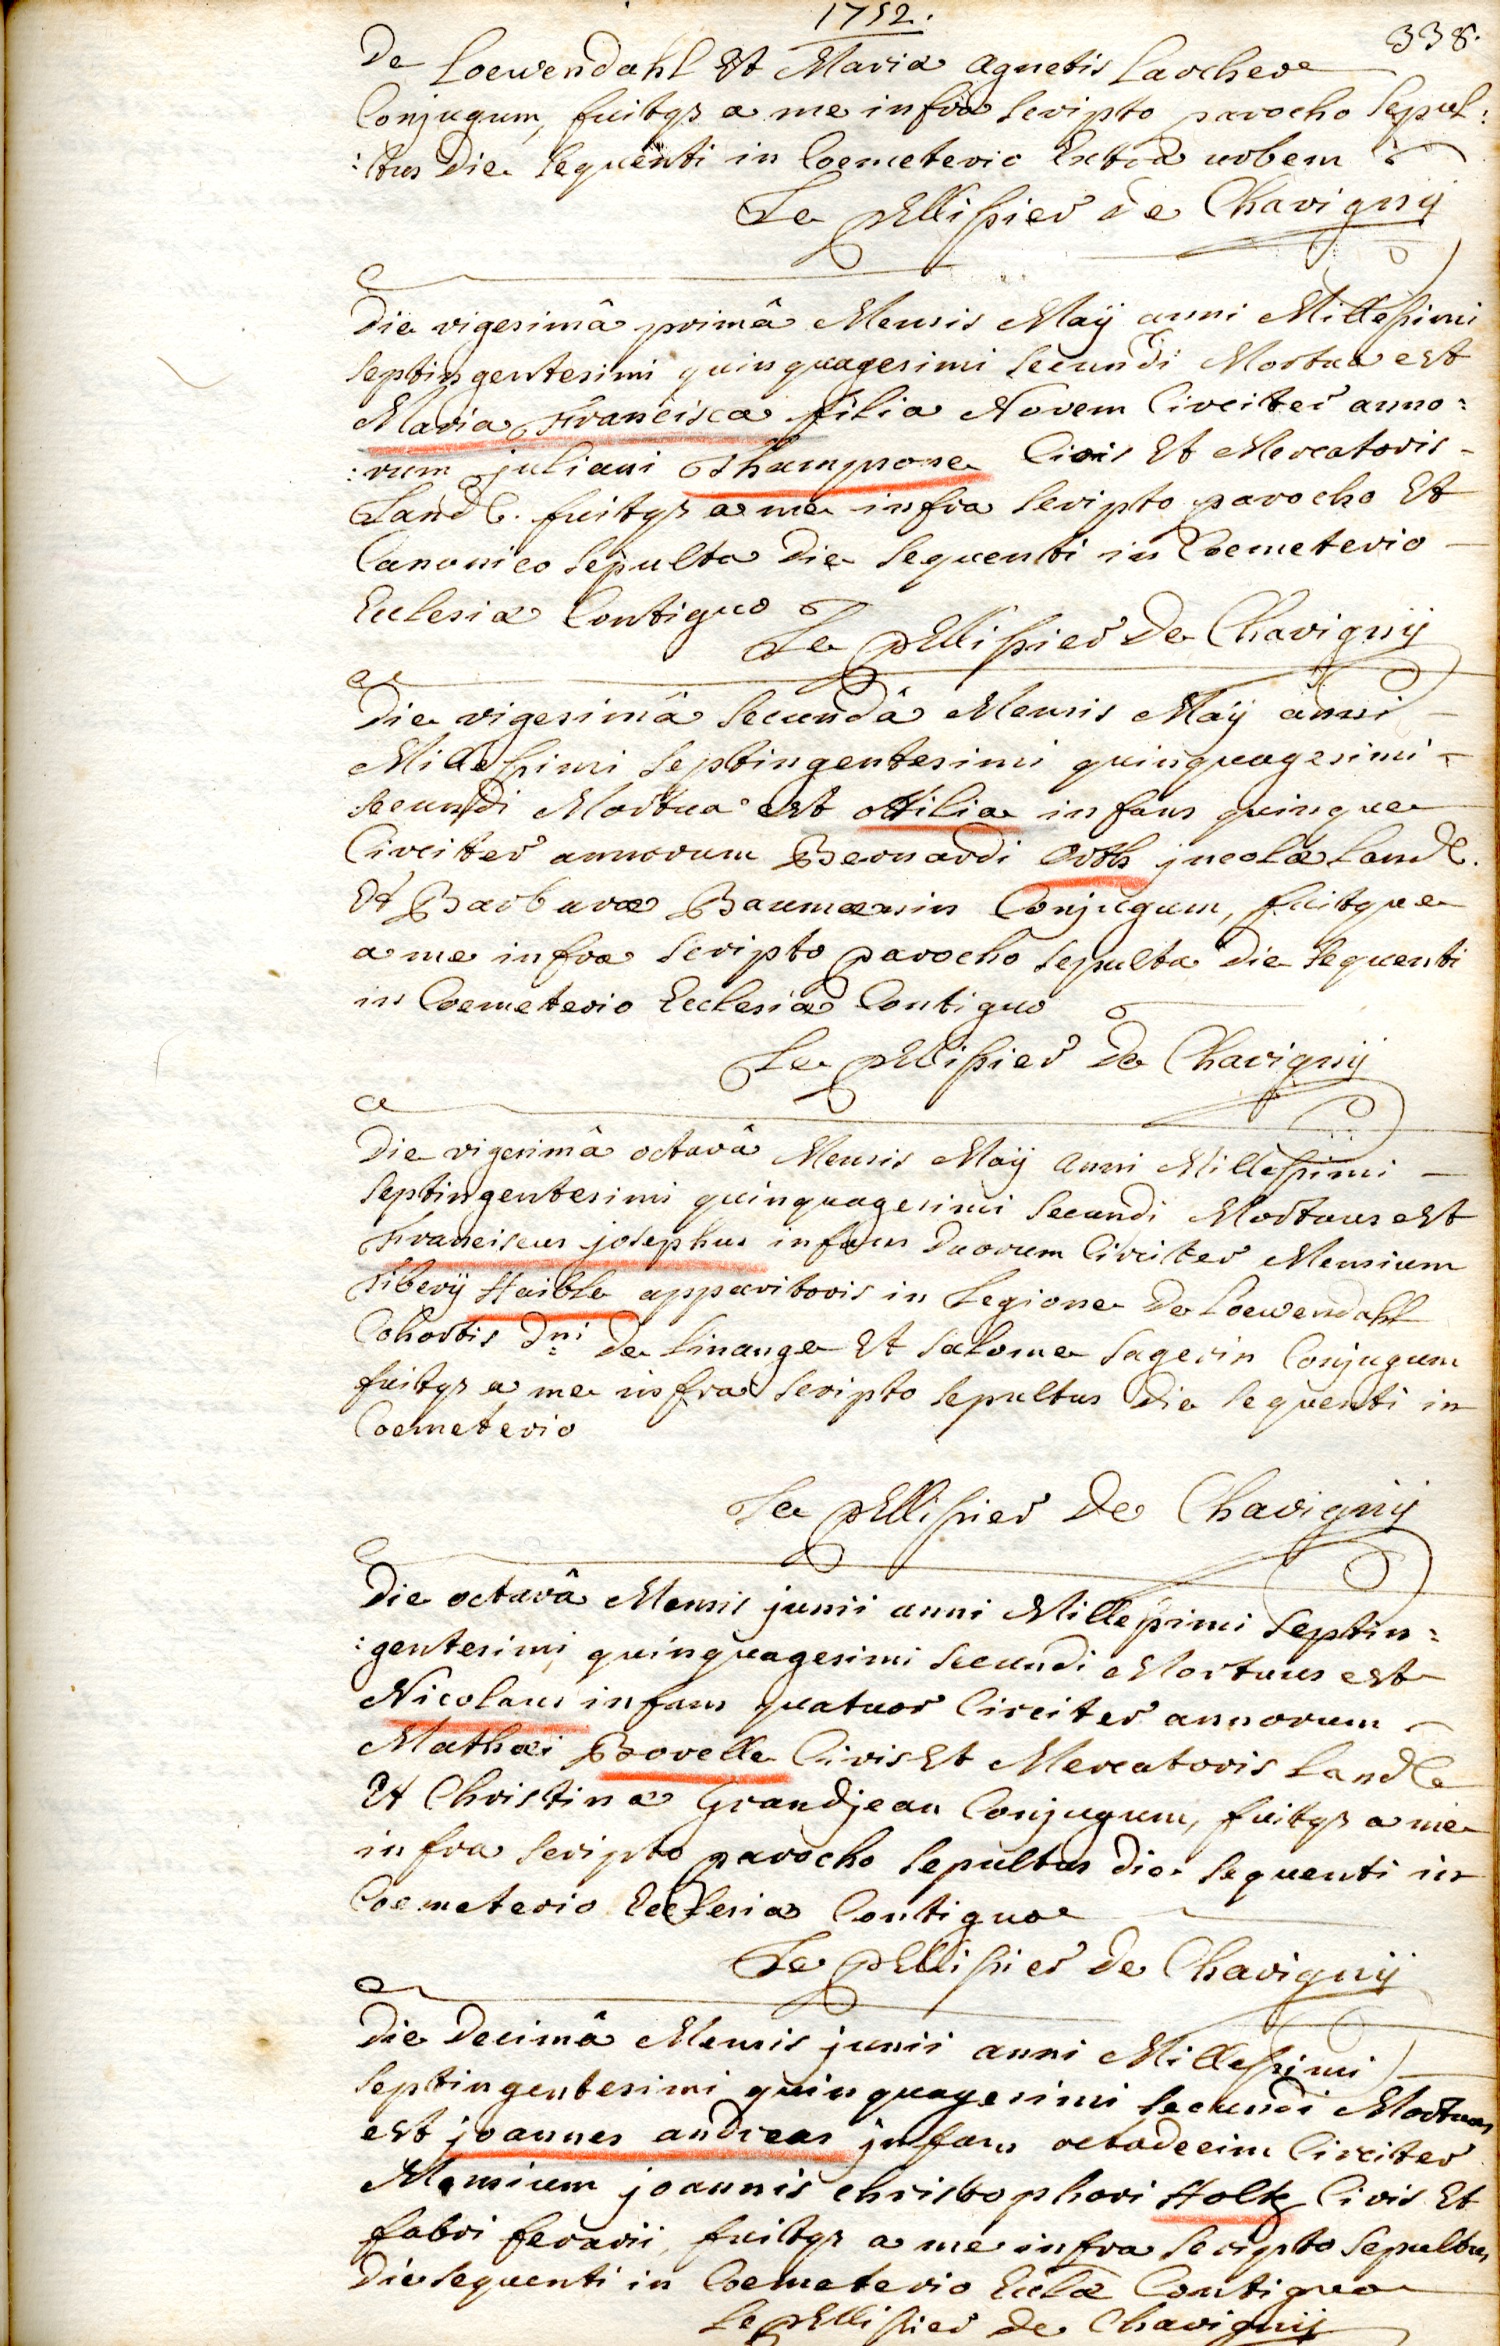 1752.
338.
De Loewendahl Et Maria Agnetis Larchere
Conjugum, fuitqz a me infra scripto parocho Sepul:
:tus die Sequenti in Coemeterio Extra urbem
Le pellissier de Chavignÿ
Die vigesimâ primâ Mensis Maÿ anni Millessimi
septingentesimi quinquagesimi secundi Mortua est
Maria Francisca filia Novem Circiter anno:
:rum juliani Champone Civis Et Mercatoris
Land C. fuitqz a me infra scripto parocho Et
Canonico Sepulta Die Sequenti in Coemeterio
Ecclesiæ Contiguo
Le pellissier De Chavignÿ
Die vigesimâ secundâ Mensis Maÿ anni
Millessimi septingentesimi quinquagesimi
secundi Mortua est ottilia infans quinque
Circiter annorum Bernardi Orth jncolæ Land C.
Et Barbaræ Baumænin Conjugum, fuitque
a me infra scripto parocho Sepulta die Sequenti
in Coemeterio Ecclesiæ Contiguo
Le pellissier De Chavignÿ
Die vigesimâ octavâ Mensis Maÿ Anni Millessimi
septingentesimi quinquagesimi secundi Mortuus est
Franciscus josephus infans duorum Circiter Mensium
Tiberÿ Haible apparitoris in Legione De Loewendahl
Cohortis Dni De Linange Et Salome Sagerin Conjugum
fuitqz a me infra scripto sepultus Die sequenti in
Coemeterio
Le pellissier De Chavignÿ
Die octavâ Mensis junii anni Millessimi Septin:
:gentesimi quinquagesimi secundi Mortuus est
Nicolaus infans quatuor Circiter annorum
Mathæi Bovelle Civis Et Mercatoris Land C
Et Christinæ Grandjean Conjugum, fuitqz a me
infra scripto parocho sepultus die sequenti in
Coemeterio Ecclesiæ Contiguo
Le pellissier De Chavignÿ
Die Decimâ Mensis junii anni Millessimi
septingentesimi quinquagesimi secundi Mortuus
est joannes andreas jnfans octodecim Circiter
Mensium joannis christophori Holtz Civis Et
fabri ferarii, fuitqz a me infra scripto sepultus
Die sequenti in Coemeterio Eclæ Contiguo
Le pellissier De Chavignÿ